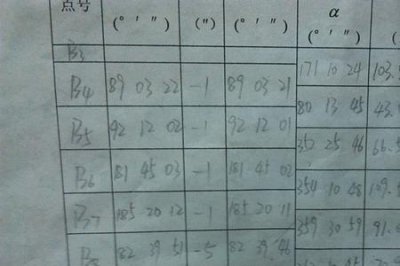 点号 α
(° ′ ″) (″) (° ′ ″) (° ′ ″)
B3
171 10 24 103.
B4 89 03 22 -1 89 03 21
80 13 45 43.
B5 92 12 02 -1 92 12 01
352 25 46 66.5
B6 181 45 03 -1 181 45 02
354 10 48 109.
B7 185 20 12 -1 185 20 11
359 30 59 91.
B8 82 39 51 -5 82 39 46